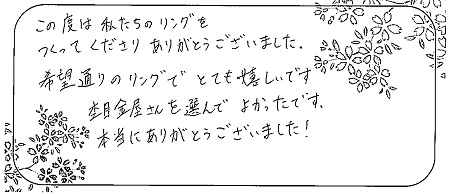 この度は私たちのリングを
つくってくださり ありがとうございました.
希望通りのリングで とても嬉しいです
杢目金屋さんを選んで よかったです.
本当にありがとうございました!